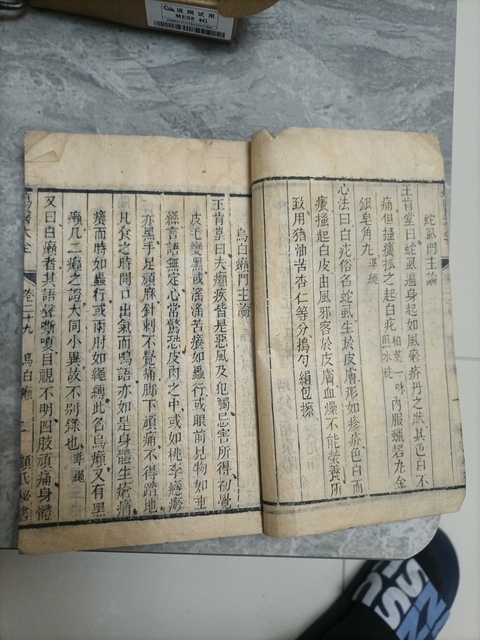 蛇虱門主論
王肯堂曰蛇虱遍身起如風疥丹之狀其色白不
痛但搔癢孤之起白疕煎水洗內服蠟礬丸金
銀皂角丸準繩
心法曰白疕俗名蛇虱生於皮膚形如疹疥色白而
癢搔起白皮由風邪客於皮膚血燥不能榮養所
致用猪油苦杏仁等分搗勻絹包擦
烏白癩門主論
王肯堂曰夫癩疾皆是惡風及犯觸忌害所得初覺
皮毛變黑或淫淫苦癢如蟲行或眼前見物如垂
絲言語無定心常驚恐皮肉之中或如桃李癮疹
亦黑手足頑麻針刺不覺痛脚下頑痛不得踏地
凡食之時開口出氣而鳴語亦如是身體生瘡痛
癢而時如蟲行或兩肘如繩縛此名烏癩又有黑
癩凡二癩之證大同小異故不別錄也準繩
又曰白癩者其語聲嘶嗄目視不明四肢頑痛身體
瘍醫大全 卷二十九 烏白癩 二 顧氏秘書